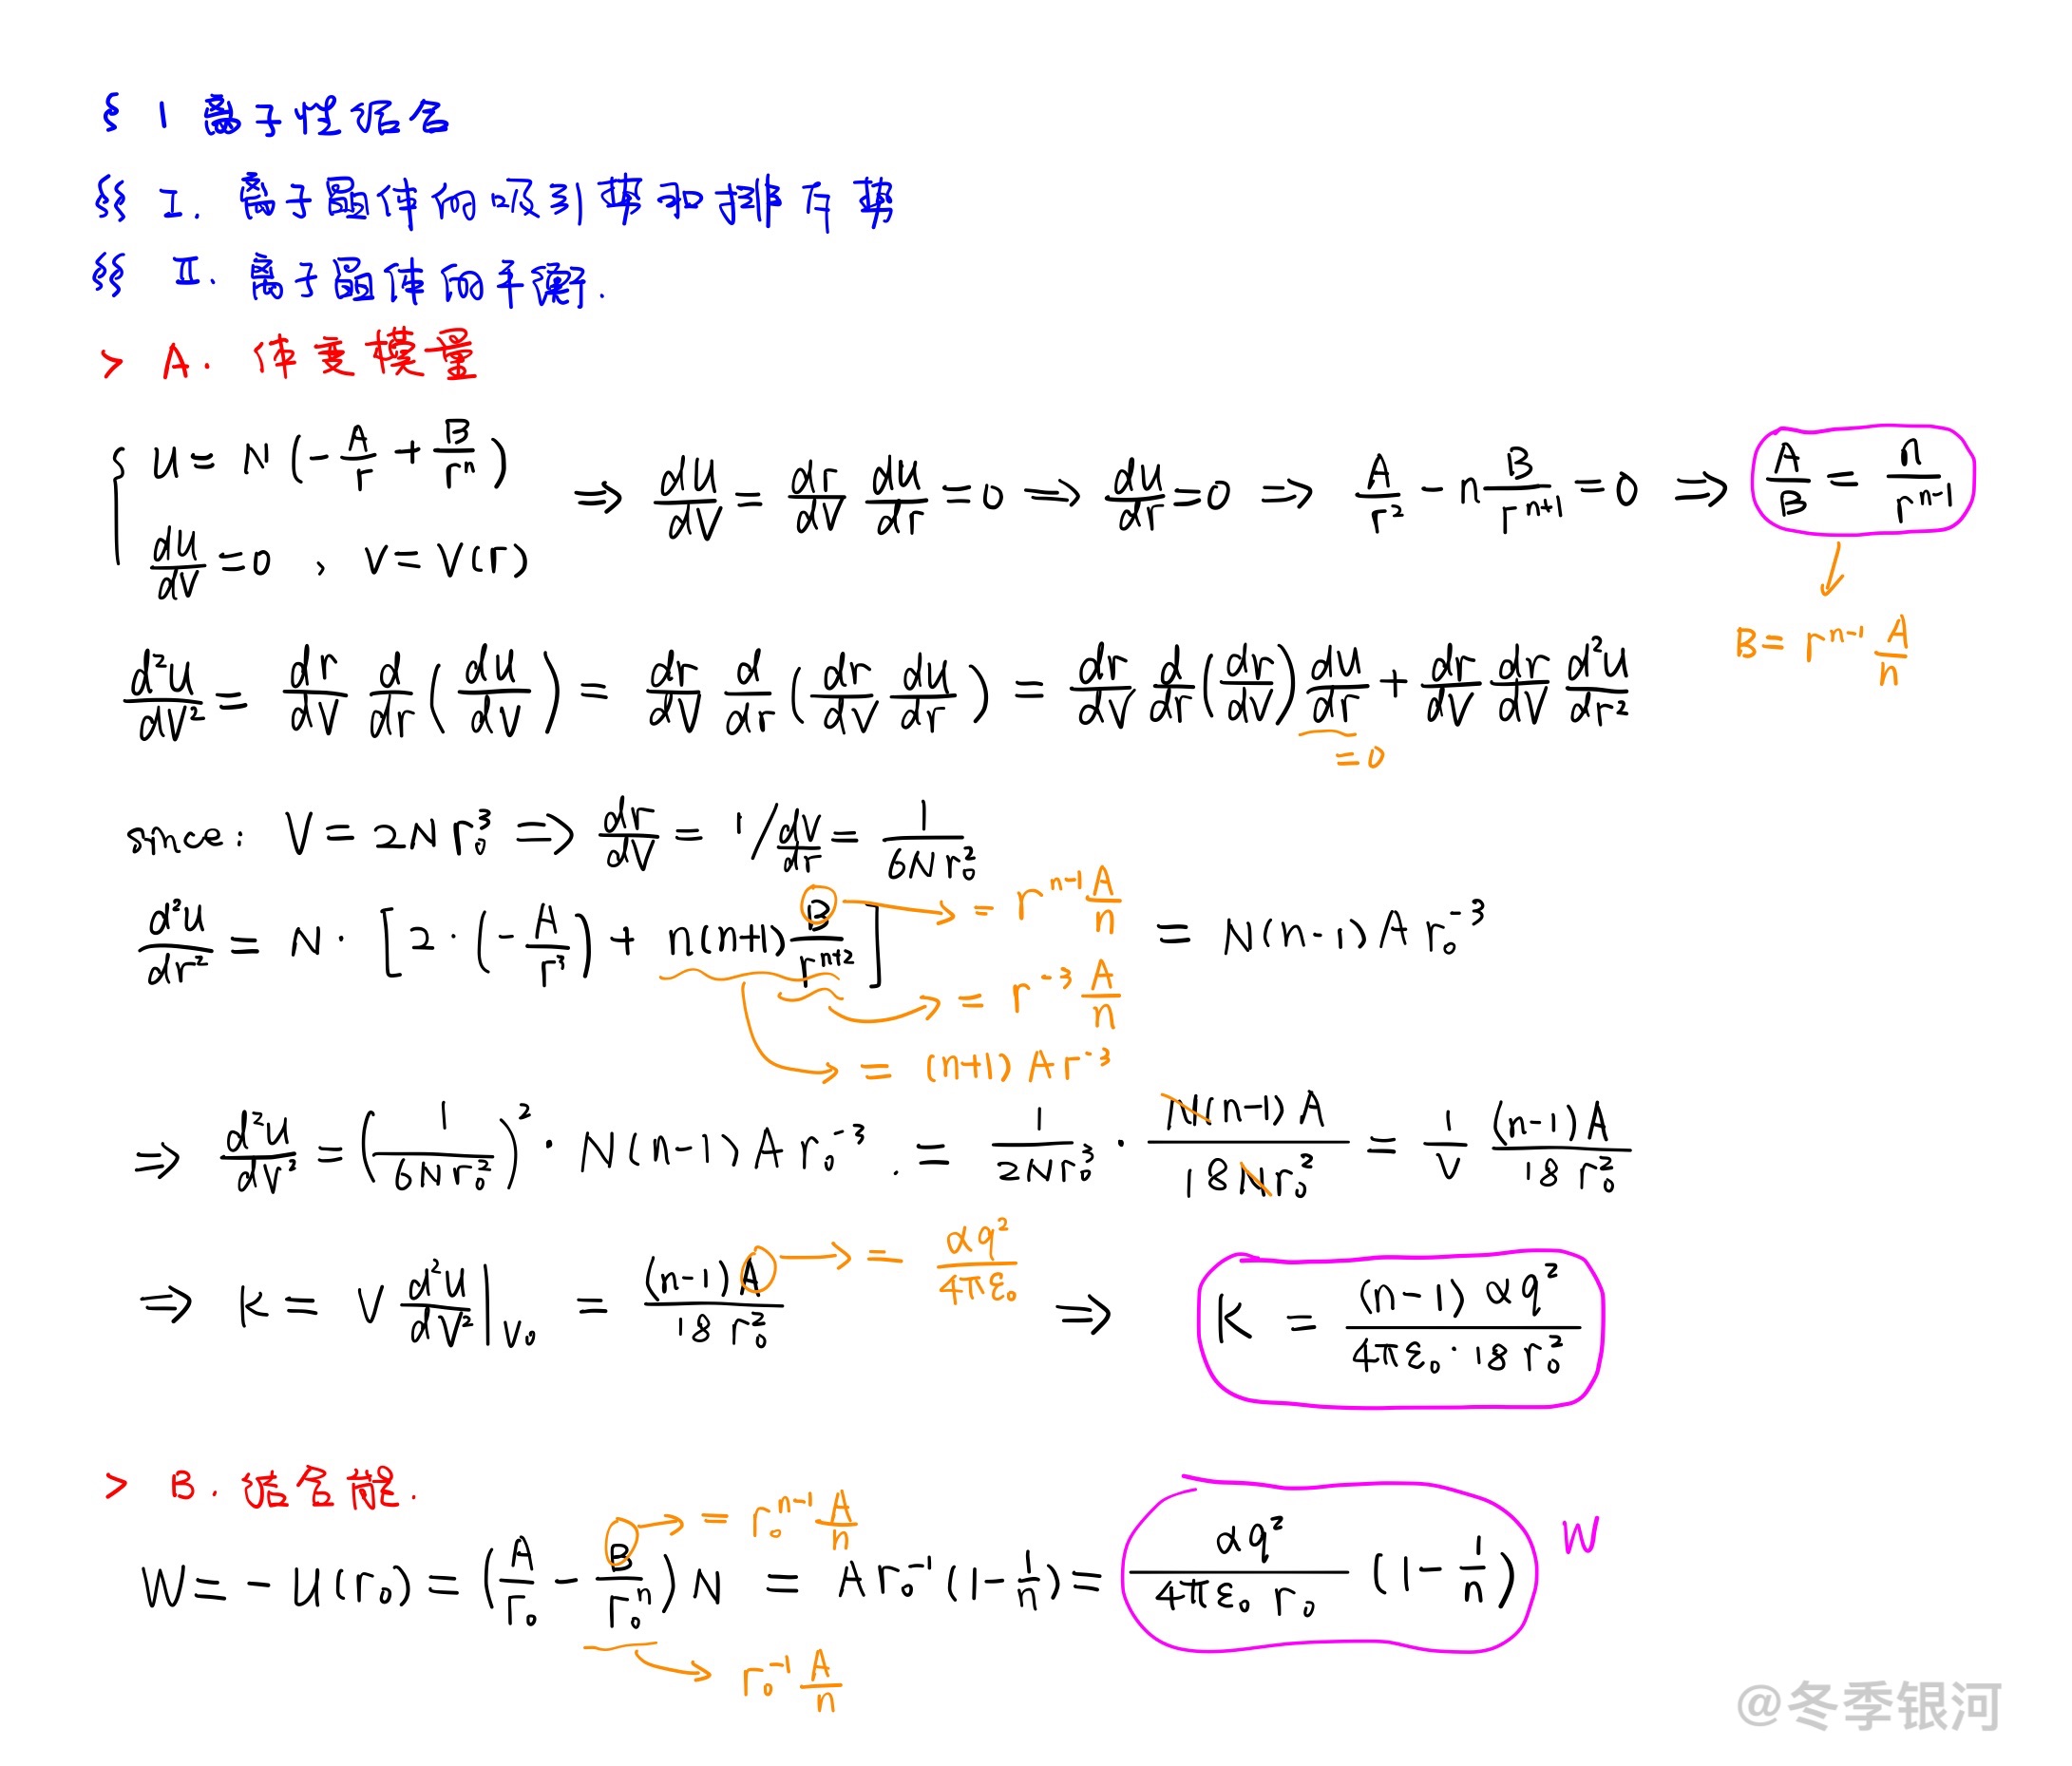 § 1 离子性结合
§§ I. 离子晶体的吸引势和排斥势
§§ II. 离子晶体的平衡.
> A. 体变模量
{ U = N(-A/r + B/rⁿ)
dU/dV = 0 , V = V(r) ⇒ dU/dV = dr/dV dU/dr = 0 ⇒ dU/dr = 0 ⇒ A/r² - n B/rⁿ⁺¹ = 0 ⇒ A/B = n/rⁿ⁻¹
B = rⁿ⁻¹ A/n
d²U/dV² = dr/dV d/dr (dU/dV) = dr/dV d/dr (dr/dV dU/dr) = dr/dV d/dr (dr/dV) dU/dr + dr/dV dr/dV d²U/dr²
= 0
since: V = 2N r₀³ ⇒ dr/dV = 1/ dV/dr = 1/6N r₀²
d²U/dr² = N · [2 · (-A/r³) + n(n+1) B/rⁿ⁺²] = N(n-1) A r₀⁻³
→ = rⁿ⁻¹ A/n
→ = r⁻³ A/n
→ = (n+1) A r⁻³
⇒ d²U/dV² = (1/6N r₀²)² · N(n-1) A r₀⁻³ . = 1/2N r₀³ · N(n-1) A/18 N r₀² = 1/V (n-1) A/18 r₀²
⇒ K = V d²U/dV² |V₀ = (n-1) A/18 r₀² → = αq²/4πε₀ ⇒ K = (n-1) αq²/4πε₀ · 18 r₀²
> B. 结合能.
→ = r₀ⁿ⁻¹ A/n
W = - U(r₀) = (A/r₀ - B/r₀ⁿ) N = A r₀⁻¹ (1 - 1/n) = αq²/4πε₀ r₀ (1 - 1/n) W
→ r₀⁻¹ A/n
@冬季银河